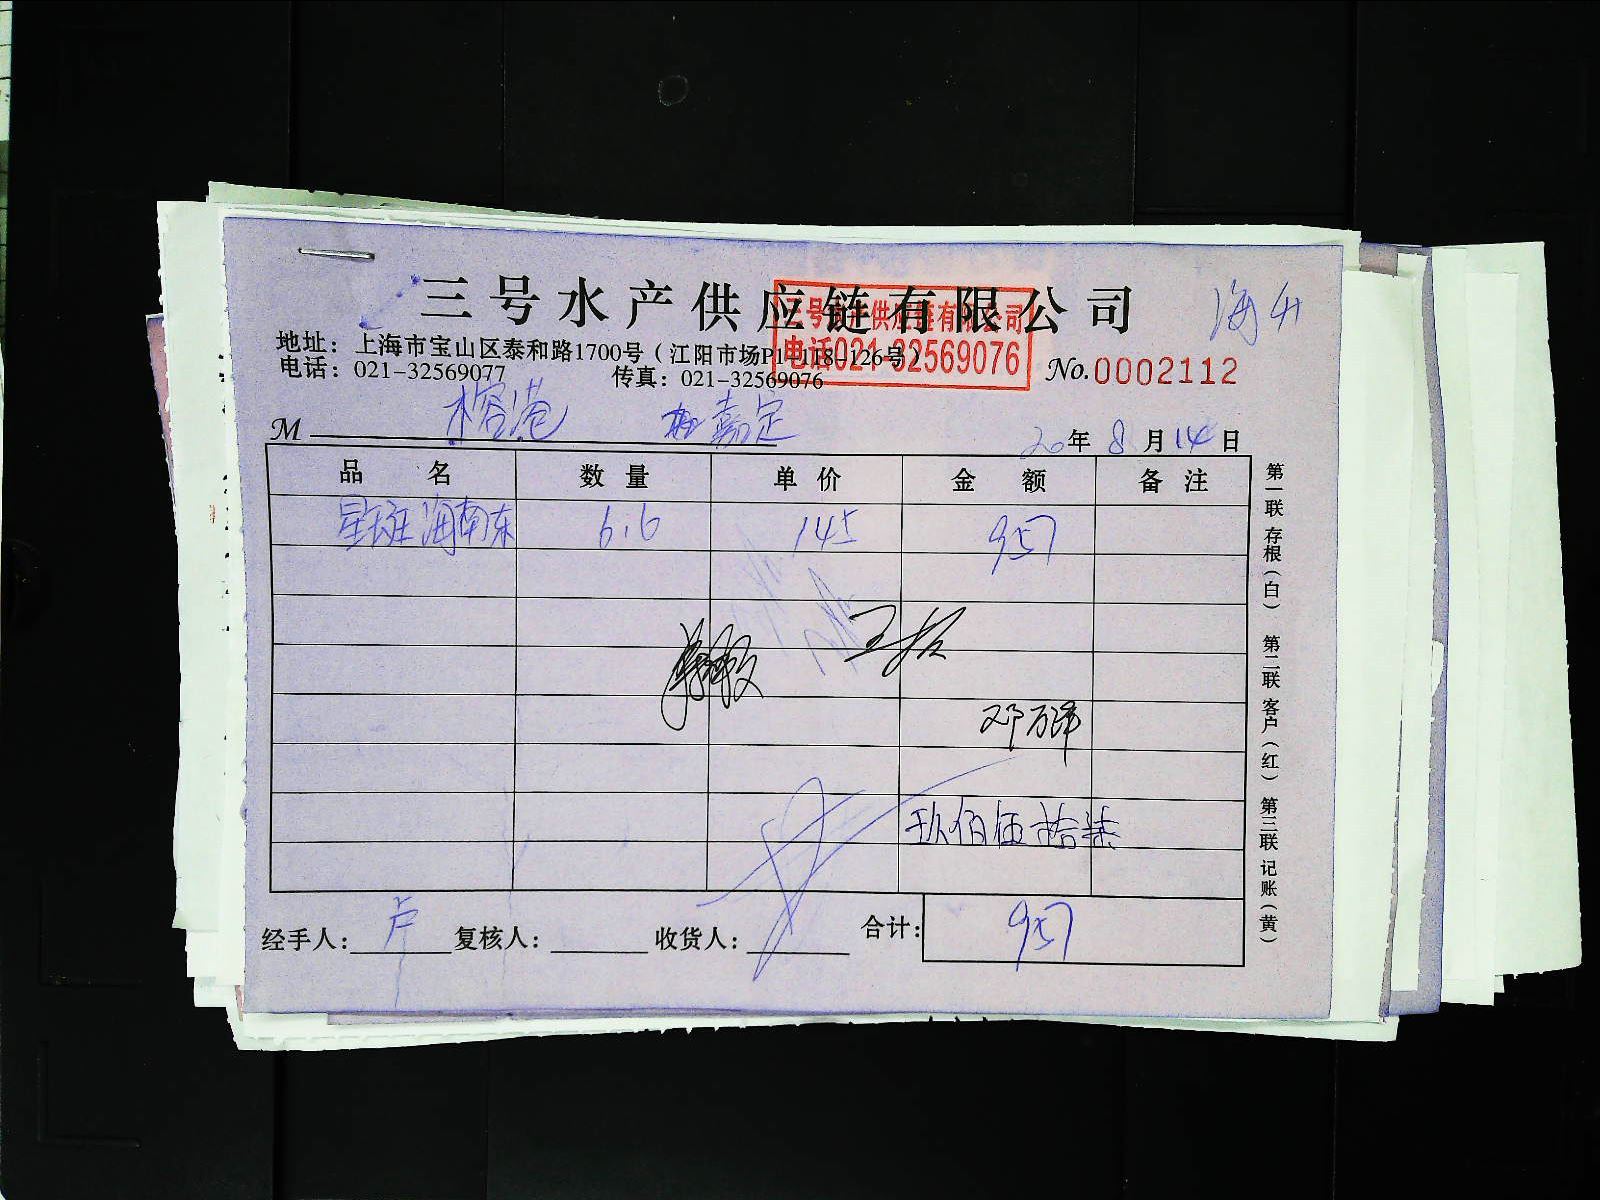 三号水产供应链有限公司
三号水产供应链有限公司
电话021-32569076
海
地址：上海市宝山区泰和路1700号（江阳市场P1-118-126号）
电话：021-32569077 传真：021-32569076
No.0002112
M 榕港 嘉定
20年8月14日
品名 数量 单价 金额 备注
星斑 海南东 6.6 145 957
王
邓万
玖佰伍拾柒
经手人：卢 复核人： 收货人： 合计：957
第一联 存根（白） 第二联 客户（红） 第三联 记账（黄）